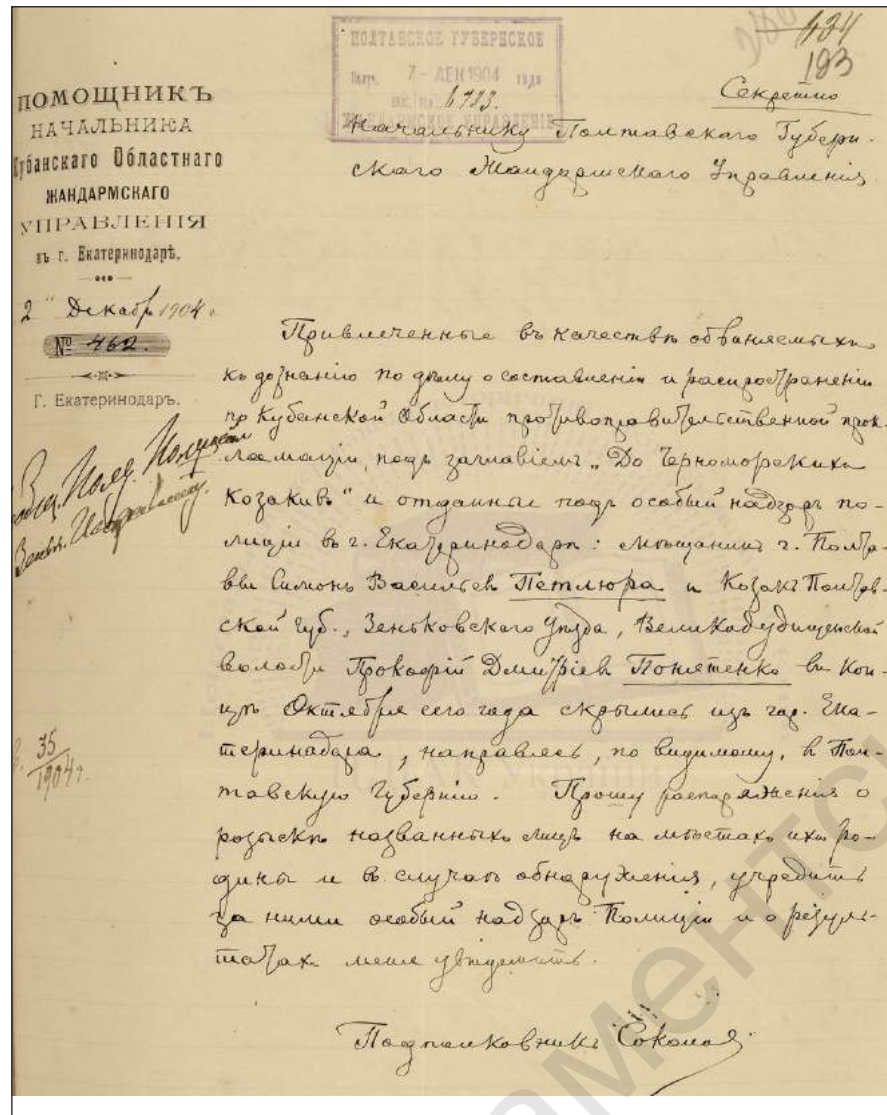 434
193
Секретно
ПОЛТАВСКОЕ ГУБЕРНСКОЕ
Получ. 7 - ДЕК 1904 года
ВХ. № 6733.
ЖАНДАРМСКОЕ УПРАВЛЕНІЕ
ПОМОЩНИКЪ
НАЧАЛЬНИКА
Кубанскаго Областнаго
ЖАНДАРМСКАГО
УПРАВЛЕНІЯ
въ г. Екатеринодарѣ.
2" Декабр 1904 г.
№ 462.
Г. Екатеринодаръ.
35
1904 г.
Начальнику Полтавскаго Губерн-
скаго Жандармскаго Управленія.
Привлеченные въ качествѣ обвиняемыхъ
къ дознанію по дѣлу о составленіи и распространеніи
въ Кубанской Области противоправительственной прок-
ламаціи, подъ заглавіемъ „До Черноморскихъ
Козакивъ" и отданные подъ особый надзоръ по-
лиціи въ г. Екатеринодарѣ: мѣщанинъ г. Полта-
вы Симонъ Васильевъ Петлюра и Козакъ Полтав-
ской губ., Зеньковскаго уѣзда, Великобудищенской
волости Прокофій Дмитріевъ Понятенко въ кон-
цѣ Октября сего года скрылись изъ гор. Ека-
теринадара, направясь, по видимому, в Пол-
тавскую Губернію. Прошу распоряженія о
розыскѣ названныхъ лицъ на мѣстахъ ихъ ро-
дины и въ случаѣ обнаруженія, учредить
за ними особый надзоръ Полиціи и о резуль-
татахъ меня увѣдомить.
Подполковникъ Соколов